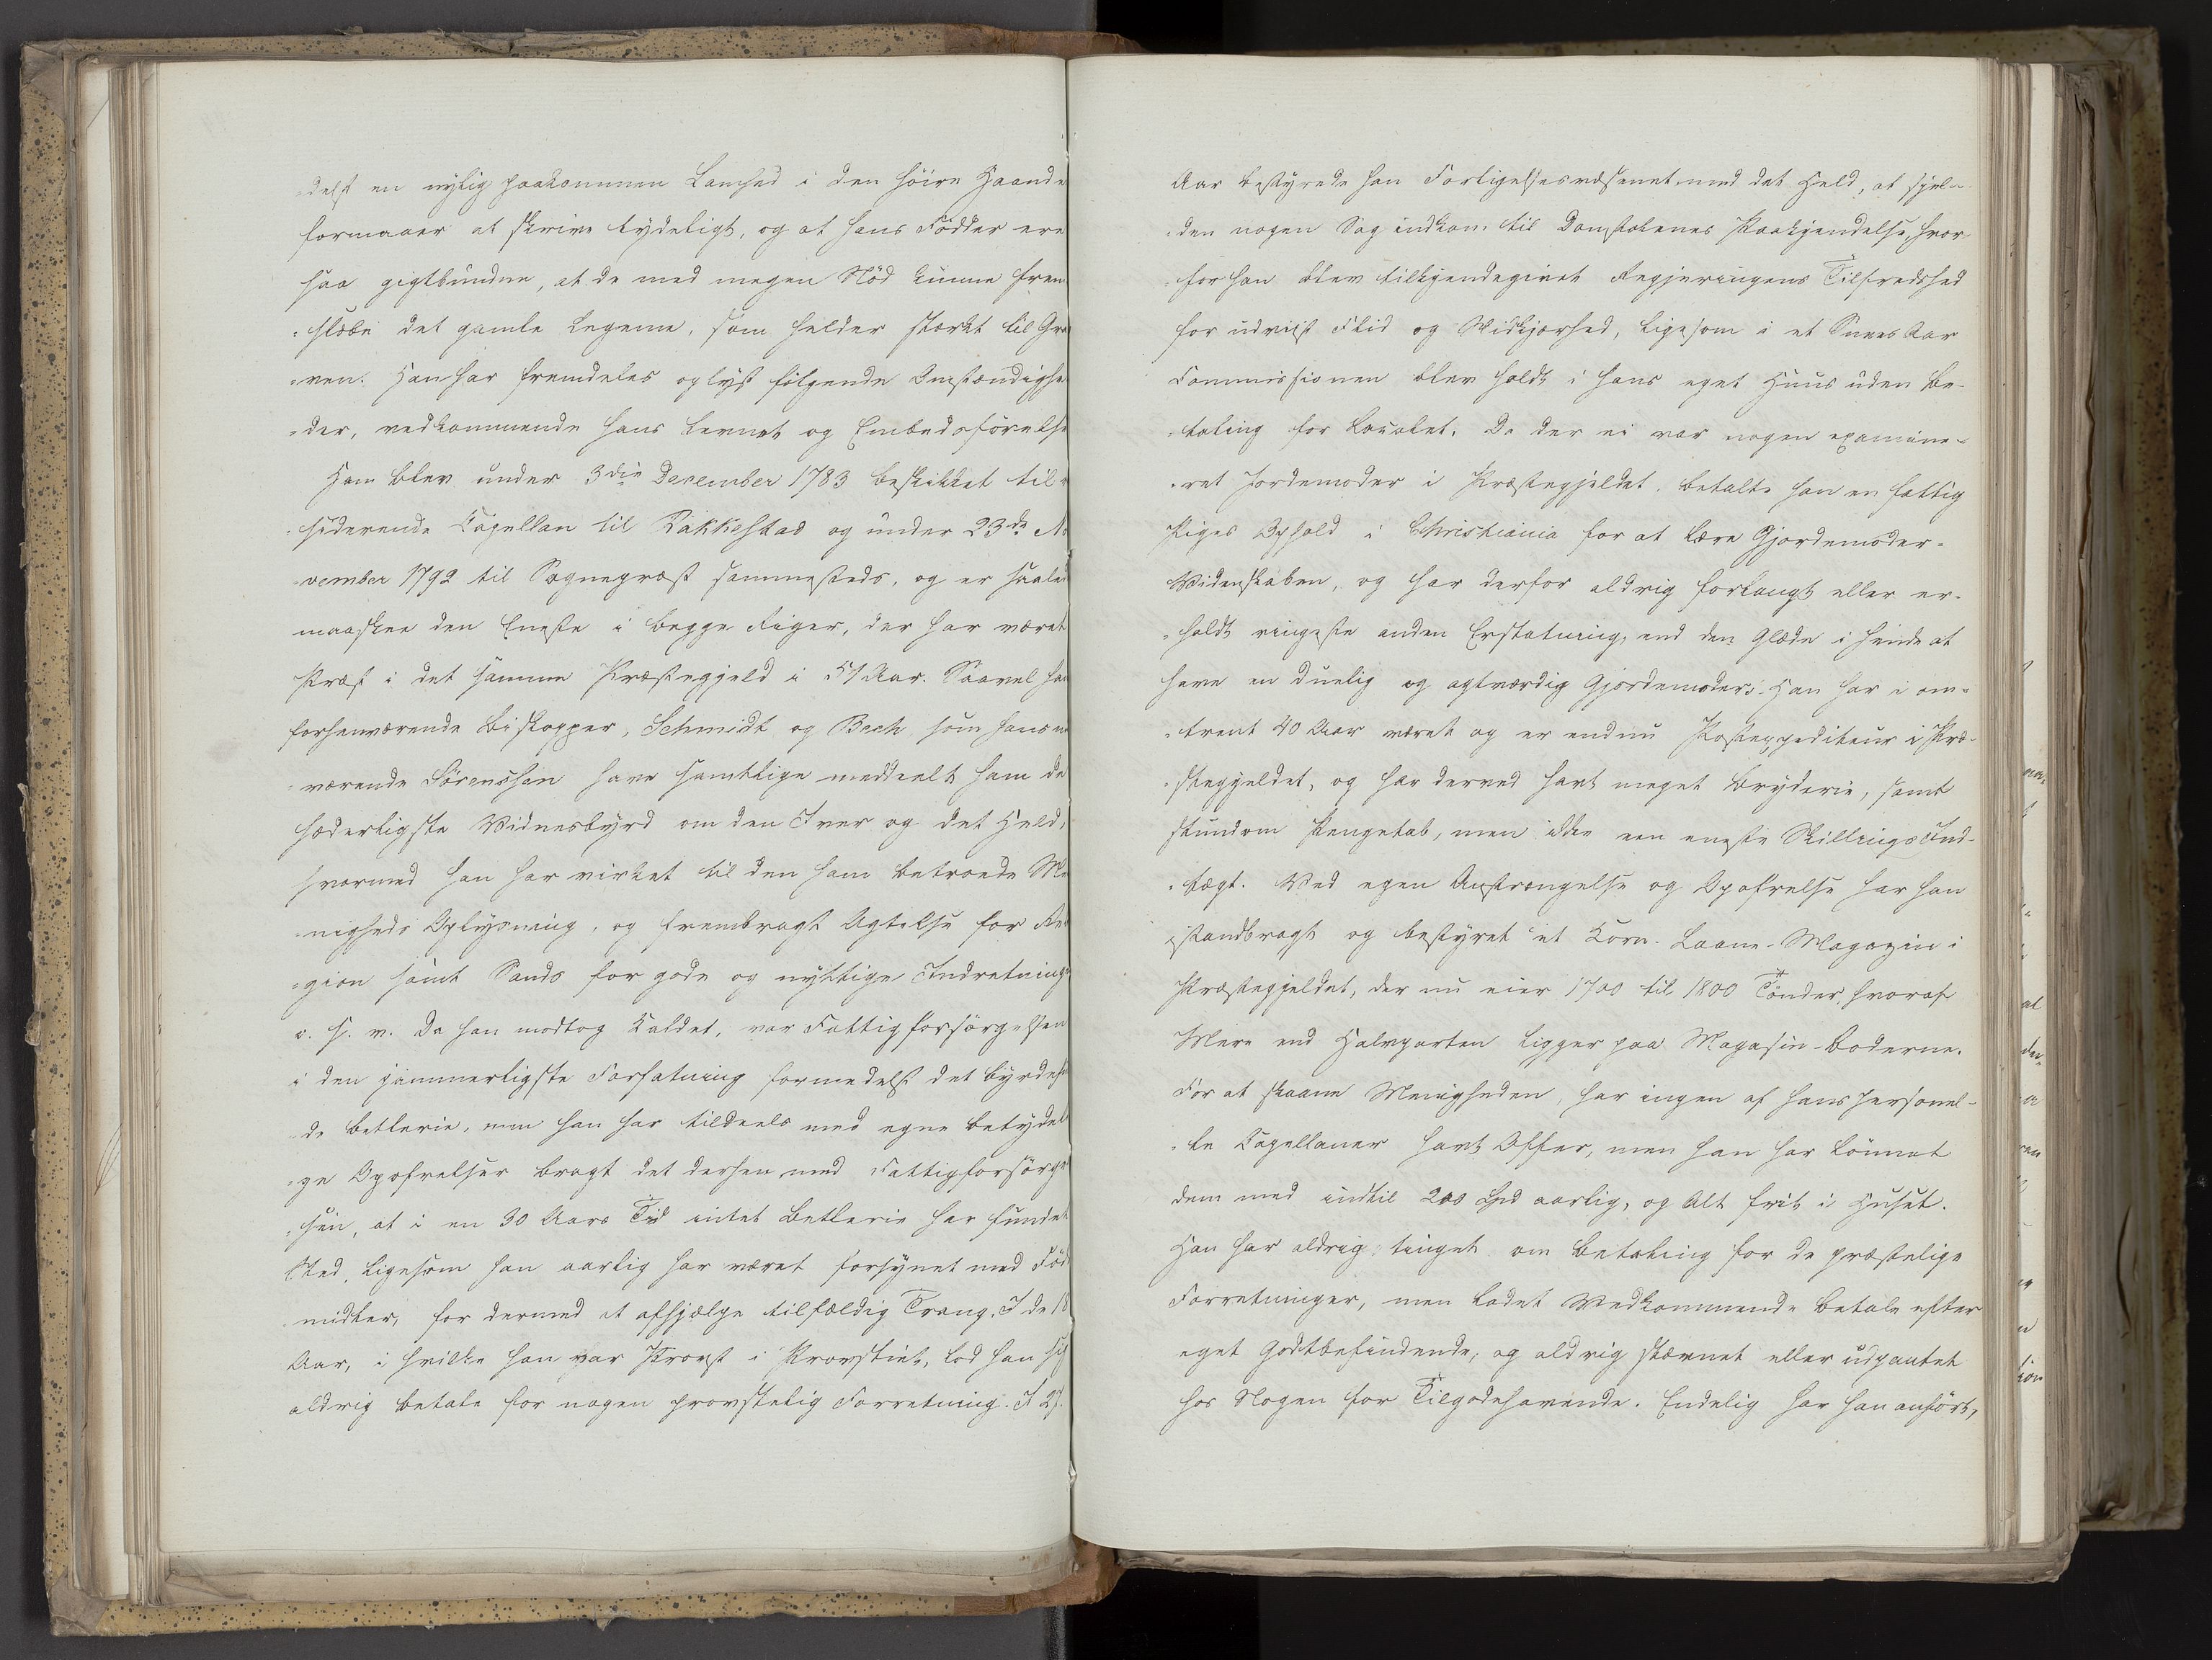 =delst en nylig paakommen Lamhed i den höire Haand
formaaer at skrive tydeligt, og at hans Födder ere
saa gigtbundne, at de med megen Nöd kunne frem
=slæbe det gamle Legeme, som helder stærkt til Gra
=ven. Han har fremdeles oplyst følgende Omstændighe
=der, vedkommende hans Levnet og Embedsförelse
Han blev under 3die December 1783 beskikket til re
=siderende Capellan til Rakkestad og under 23de No
=vember 1792 til Sognepræst sammesteds, og er saale
maaskee den Eneste i begge Riger, der har været
Præst i det samme Præstegjeld i 51 Aar. Saavel han
forhenværende Biskopper, Schmidt og Bech som hans n
=værende Sörenssen have samtlige meddeelt ham de
hæderligste Vidnesbyrd om den Iver og det Held,
hvormed han har virket til den ham betroede Me
=nigheds Oplysning, og frembragt Agtelse for Re
=gion samt Sands for gode og nyttige Indretninge
o. s. v. Da han modtog Kaldet, var Fattigforsörgelsen
i den jammerligste Forfatning formedelst det byrdeful
=de Betlerie, men han har tildeels med egne betydel
=ge Opofrelser bragt det derhen med Fattigforsörge
=sen, at i en 30 Aars Tid intet Betlerie har fundet
Sted, ligesom han aarlig har været forsynet med Föde
midler, for dermed at afhjælpe tilfældig Trang. I de 18
Aar, i hvilke han var Provst i Provstiet, lod han sig
aldrig betale for nogen provstelig Forretning. I 27.
Aar bestyrede han Forligelsesvæsenet med det Held, at sjel=
=den nogen Sag indkom til Domstolenes Paakjendelse, hvor=
=for han blev tilkjendegivet Regjeringens Tilfredshed
for udviist Flid og Nidkjærhed, ligesom i et Snees Aar
Commissionen blev holdt i hans eget Huus uden Be=
=taling for Localet. Da der ei var nogen examine=
=ret Jordemoder i Præstegjeldet, betalte han en fattig
Piges Ophold i Christiania for at lære Gjordemoder=
Videnskaben, og har derfor aldrig forlangt eller er=
=holdt ringeste anden Erstatning, end den Glæde i hende at
have en duelig og agtværdig Gjordemoder. Han har i om=
=trent 40 Aar været og er endnu Postexpediteur i Præ=
=stegjeldet, og har derved havt meget Bryderie, samt
stundom Pengetab, men ikke een eneste Skillings Ind=
=tægt. Ved egen Anstrængelse og Opofrelse har han
istandbragt og bestyret et Korn-Laane-Magazin i
Præstegjeldet, der nu eier 1700 til 1800 Tönder, hvoraf
Mere end Halvparten ligger paa Magasin-Boderne.
For at skaane Menigheden, har ingen af hans personel=
=le Capellaner havt Offer, men han har lönnet
dem med indtil 200 Spd aarlig, og Alt frit i Huset.
Han har aldrig tinget om Betaling for de præstelige
Forretninger, men ladet Vedkommende betale efter
eget Godtbefindende, og aldrig stævnet eller udpantet
hos Nogen for Tilgodehavende. Endelig har han anført,